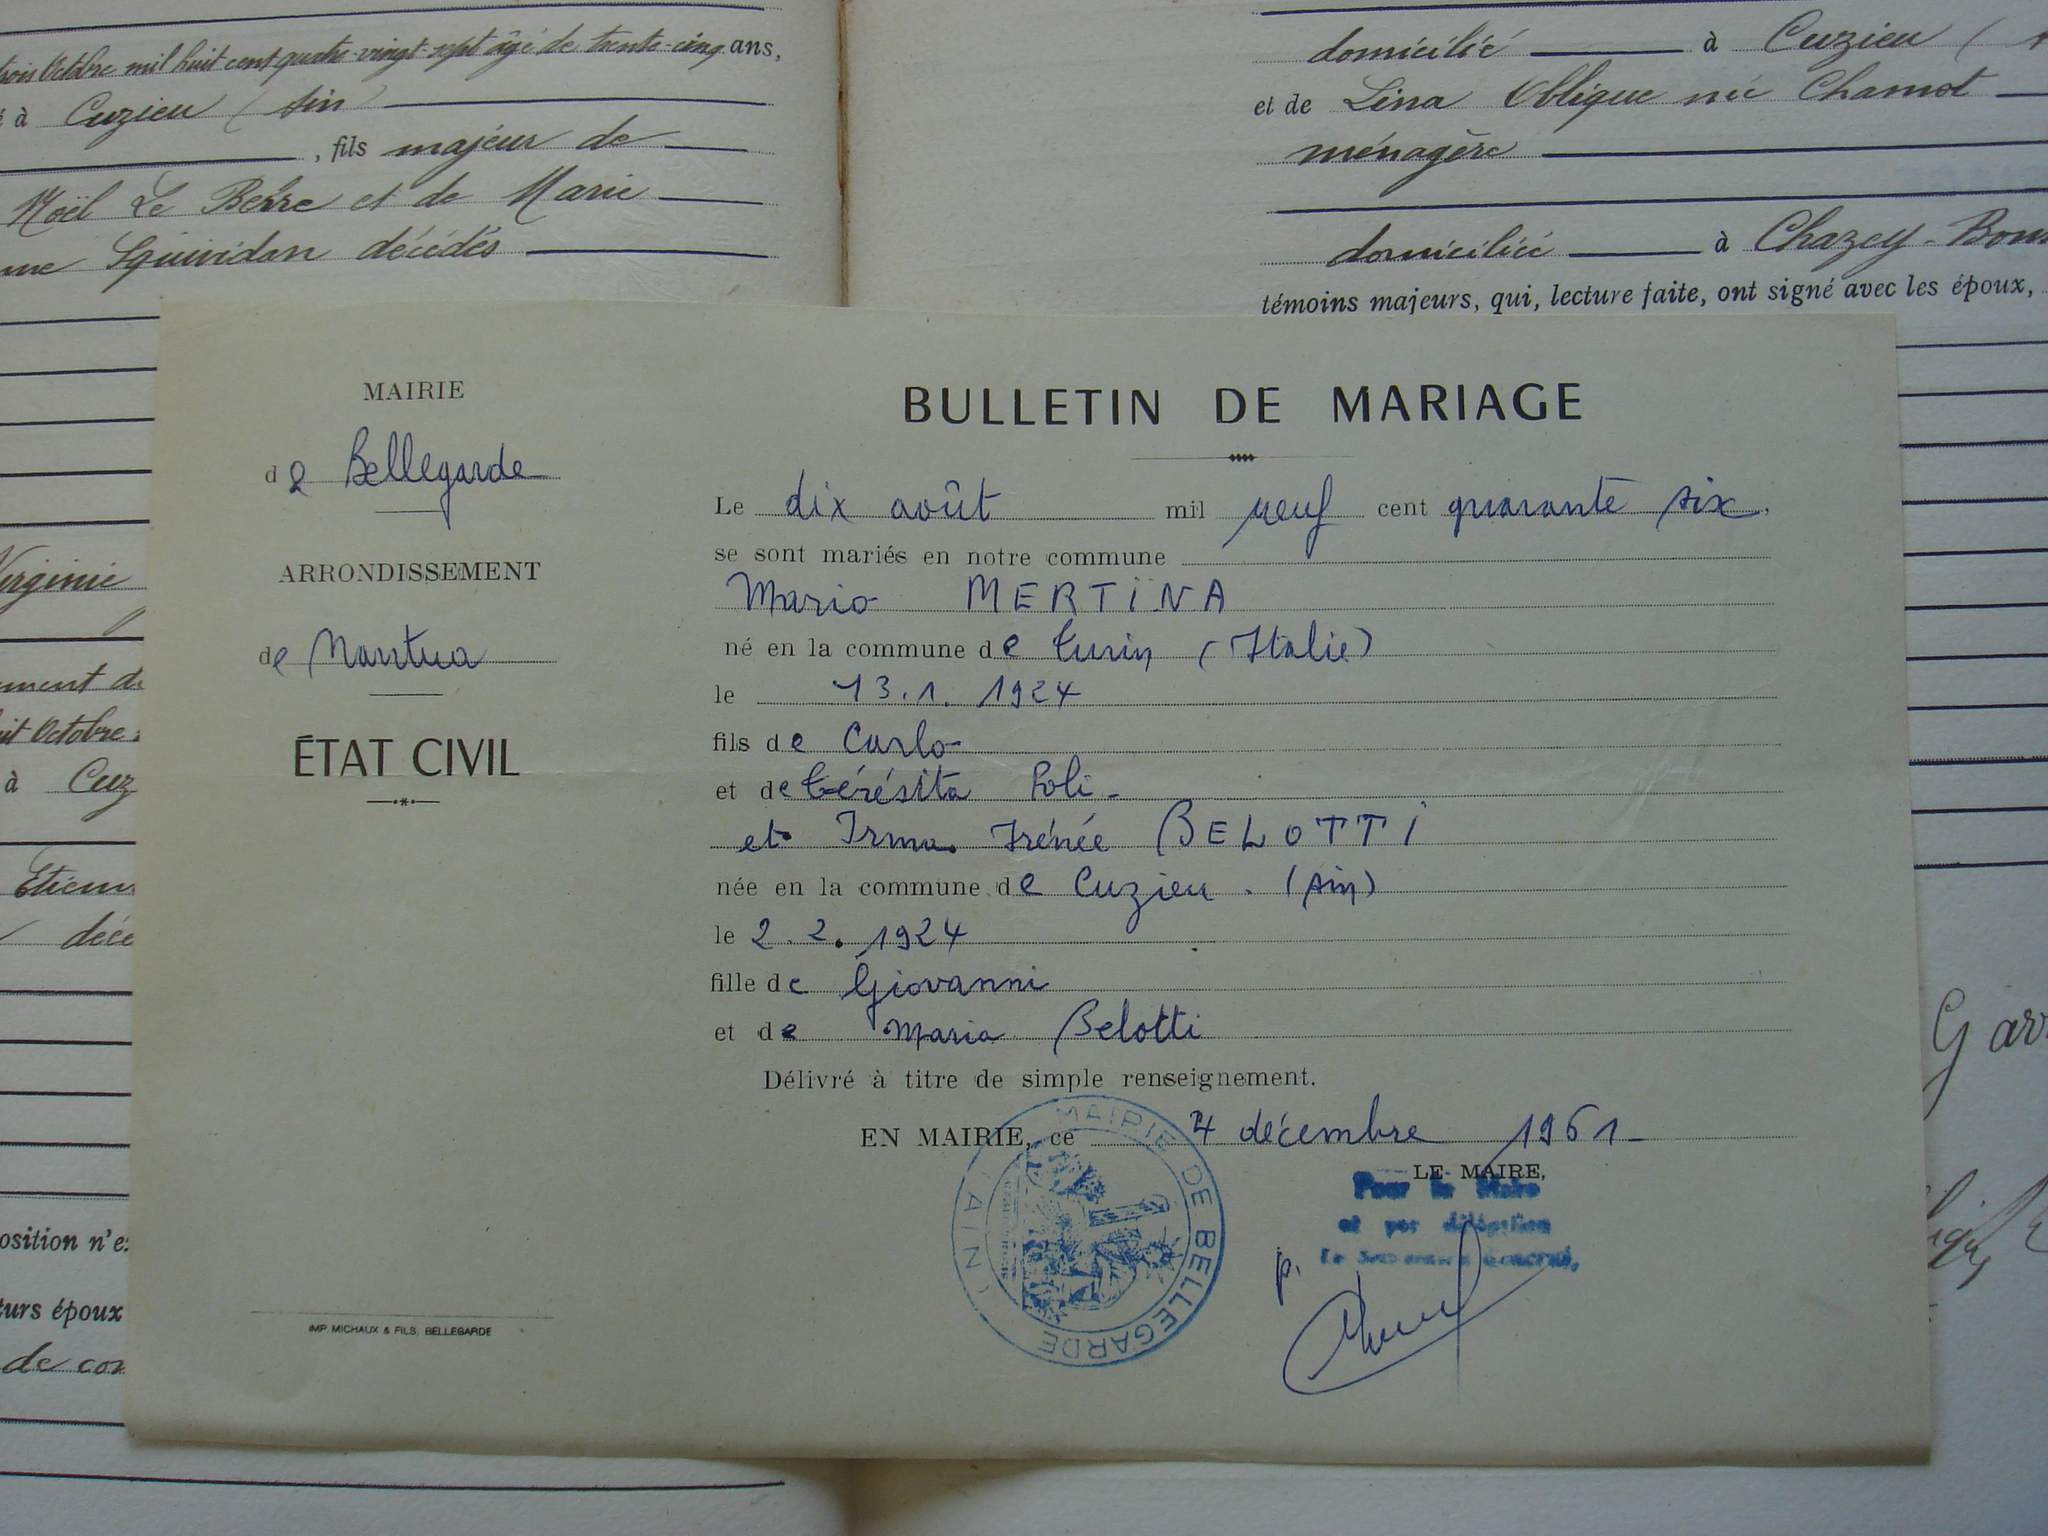 trois Octobre mil huit cent quatre-vingt-sept âgé de trente-cinq ans,
à Cuzieu (Ain)
, fils majeur de
Noël Le Berre et de Marie
décédés
domicilié à Cuzieu
et de Lina Oblique née Chamot
ménagère
domiciliée à Chazey-Bons
témoins majeurs, qui, lecture faite, ont signé avec les époux,
Virginie
Octobre
à Cuz
Etienn
osition n'e
turs époux
de con
MAIRIE
de Bellegarde
ARRONDISSEMENT
de Nantua
ÉTAT CIVIL
IMP. MICHAUX & FILS, BELLEGARDE
BULLETIN DE MARIAGE
Le dix août mil neuf cent quarante six,
se sont mariés en notre commune
Mario MERTINA
né en la commune de Turin (Italie)
le 13.1.1924
fils de Carlo
et de Térésita Poli
et Irma Irénée BELOTTI
née en la commune de Cuzieu. (Ain)
le 2.2.1924
fille de Giovanni
et de Maria Belotti
Délivré à titre de simple renseignement.
EN MAIRIE, ce 4 décembre 1961
LE MAIRE,
Pour le Maire
et par délégation
Le Secrétaire Général,
p.
MAIRIE DE BELLEGARDE (AIN)